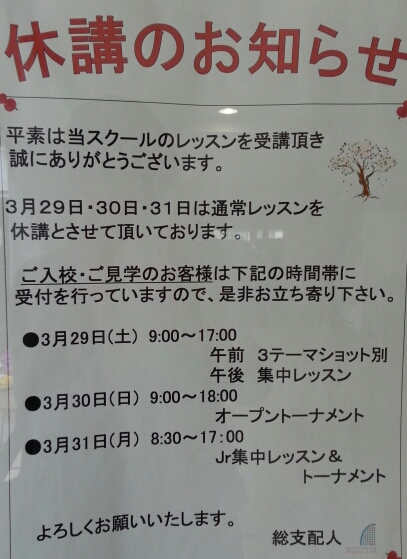 休講のお知らせ
平素は当スクールのレッスンを受講頂き
誠にありがとうございます。
3月29日・30日・31日は通常レッスンを
休講とさせて頂いております。
ご入校・ご見学のお客様は下記の時間帯に
受付を行っていますので、是非お立ち寄り下さい。
●3月29日(土) 9:00～17:00
午前 3テーマショット別
午後 集中レッスン
●3月30日(日) 9:00～18:00
オープントーナメント
●3月31日(月) 8:30～17:00
Jr集中レッスン＆
トーナメント
よろしくお願いいたします。
総支配人